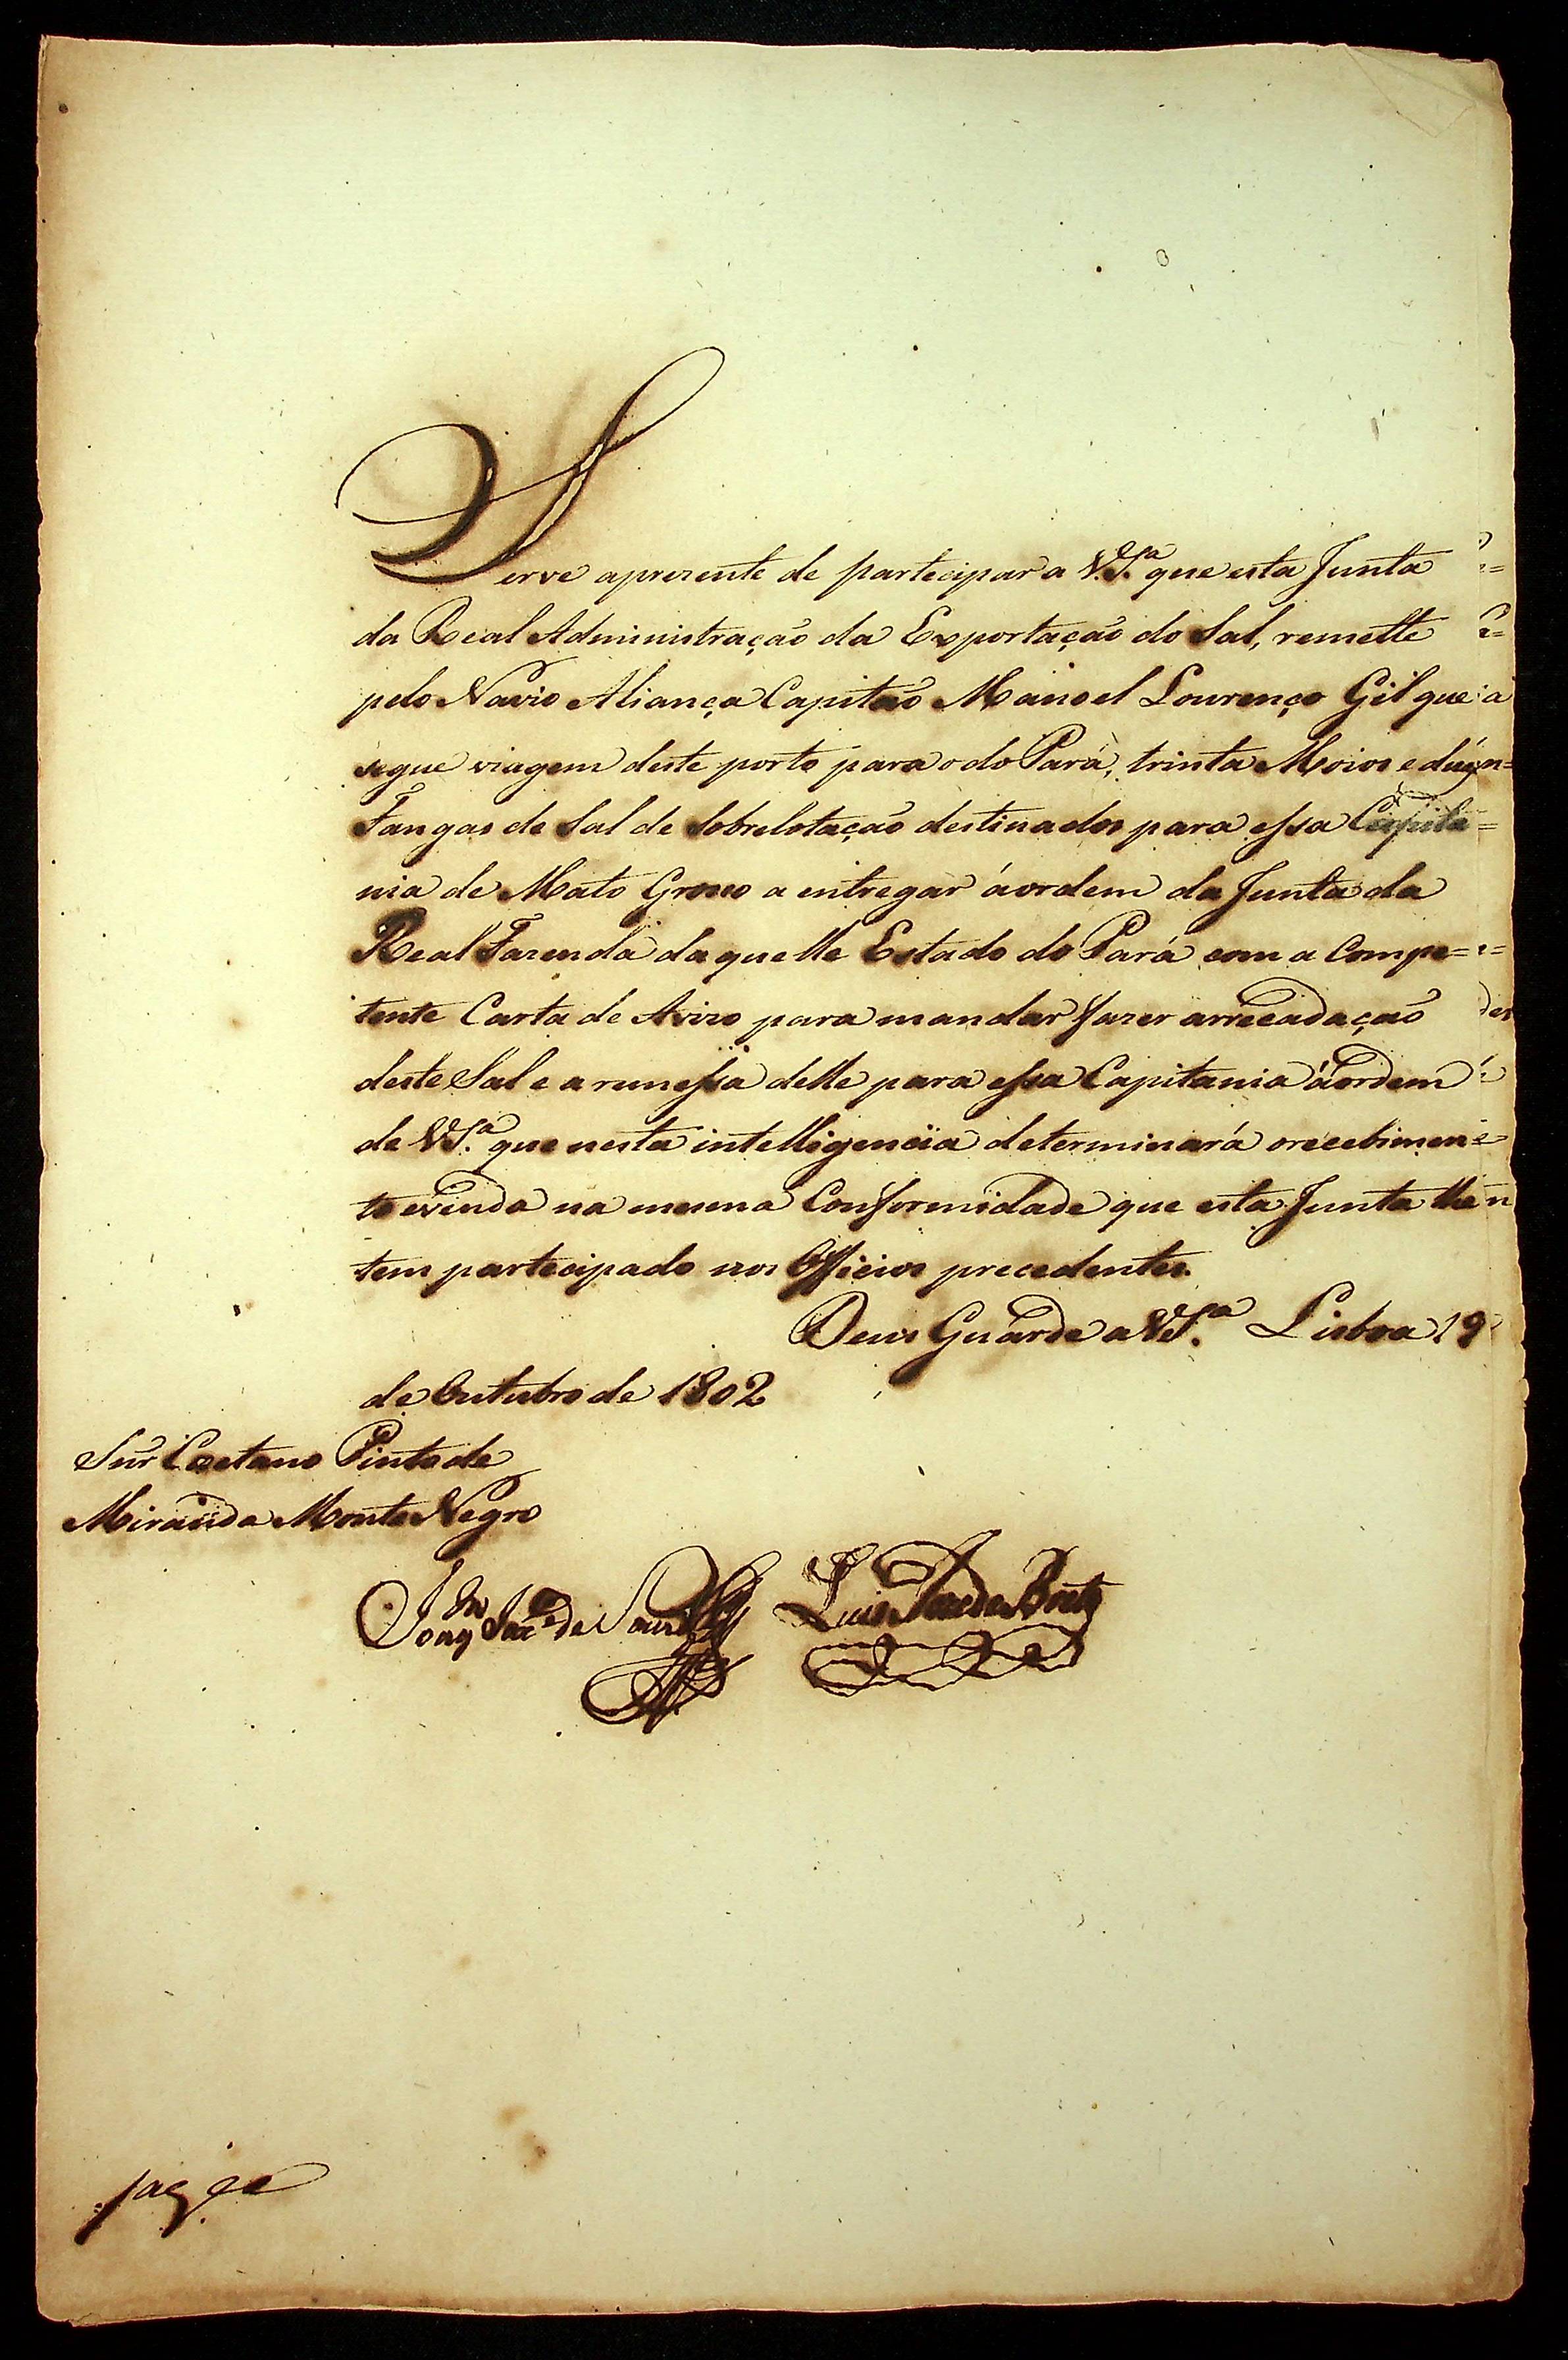 Serve aprezente de partecipar a V.S.ª que esta Junta
da Real Administração da Exportação do Sal, remette
pelo Navio Aliança Capitão Manoel Lourenço Gil que
segue viagem deste porto para o do Pará, trinta Moios e duas
Fangas de Sal de Sobrelotação destinados para essa Capita
nia de Mato Grosso a entregar áordem da Junta da
Real Fazenda daquelle Estado do Pará com a Compe=
tente Carta de Avizo para mandar fazer arrecadação
deste Sal e a remessa delle para essa Capitania áordem
de V.S.ª que nesta intelligencia determinará orecebimen
to evenda na mesma Conformidade que esta Junta lhe
tem partecipado nos Officios precedentes.
Deus Guarde a V.S.ª Lisboa 19
de Outubro de 1802
Snr̃ Caetano Pinto de
Miranda Monte Negro
Luis